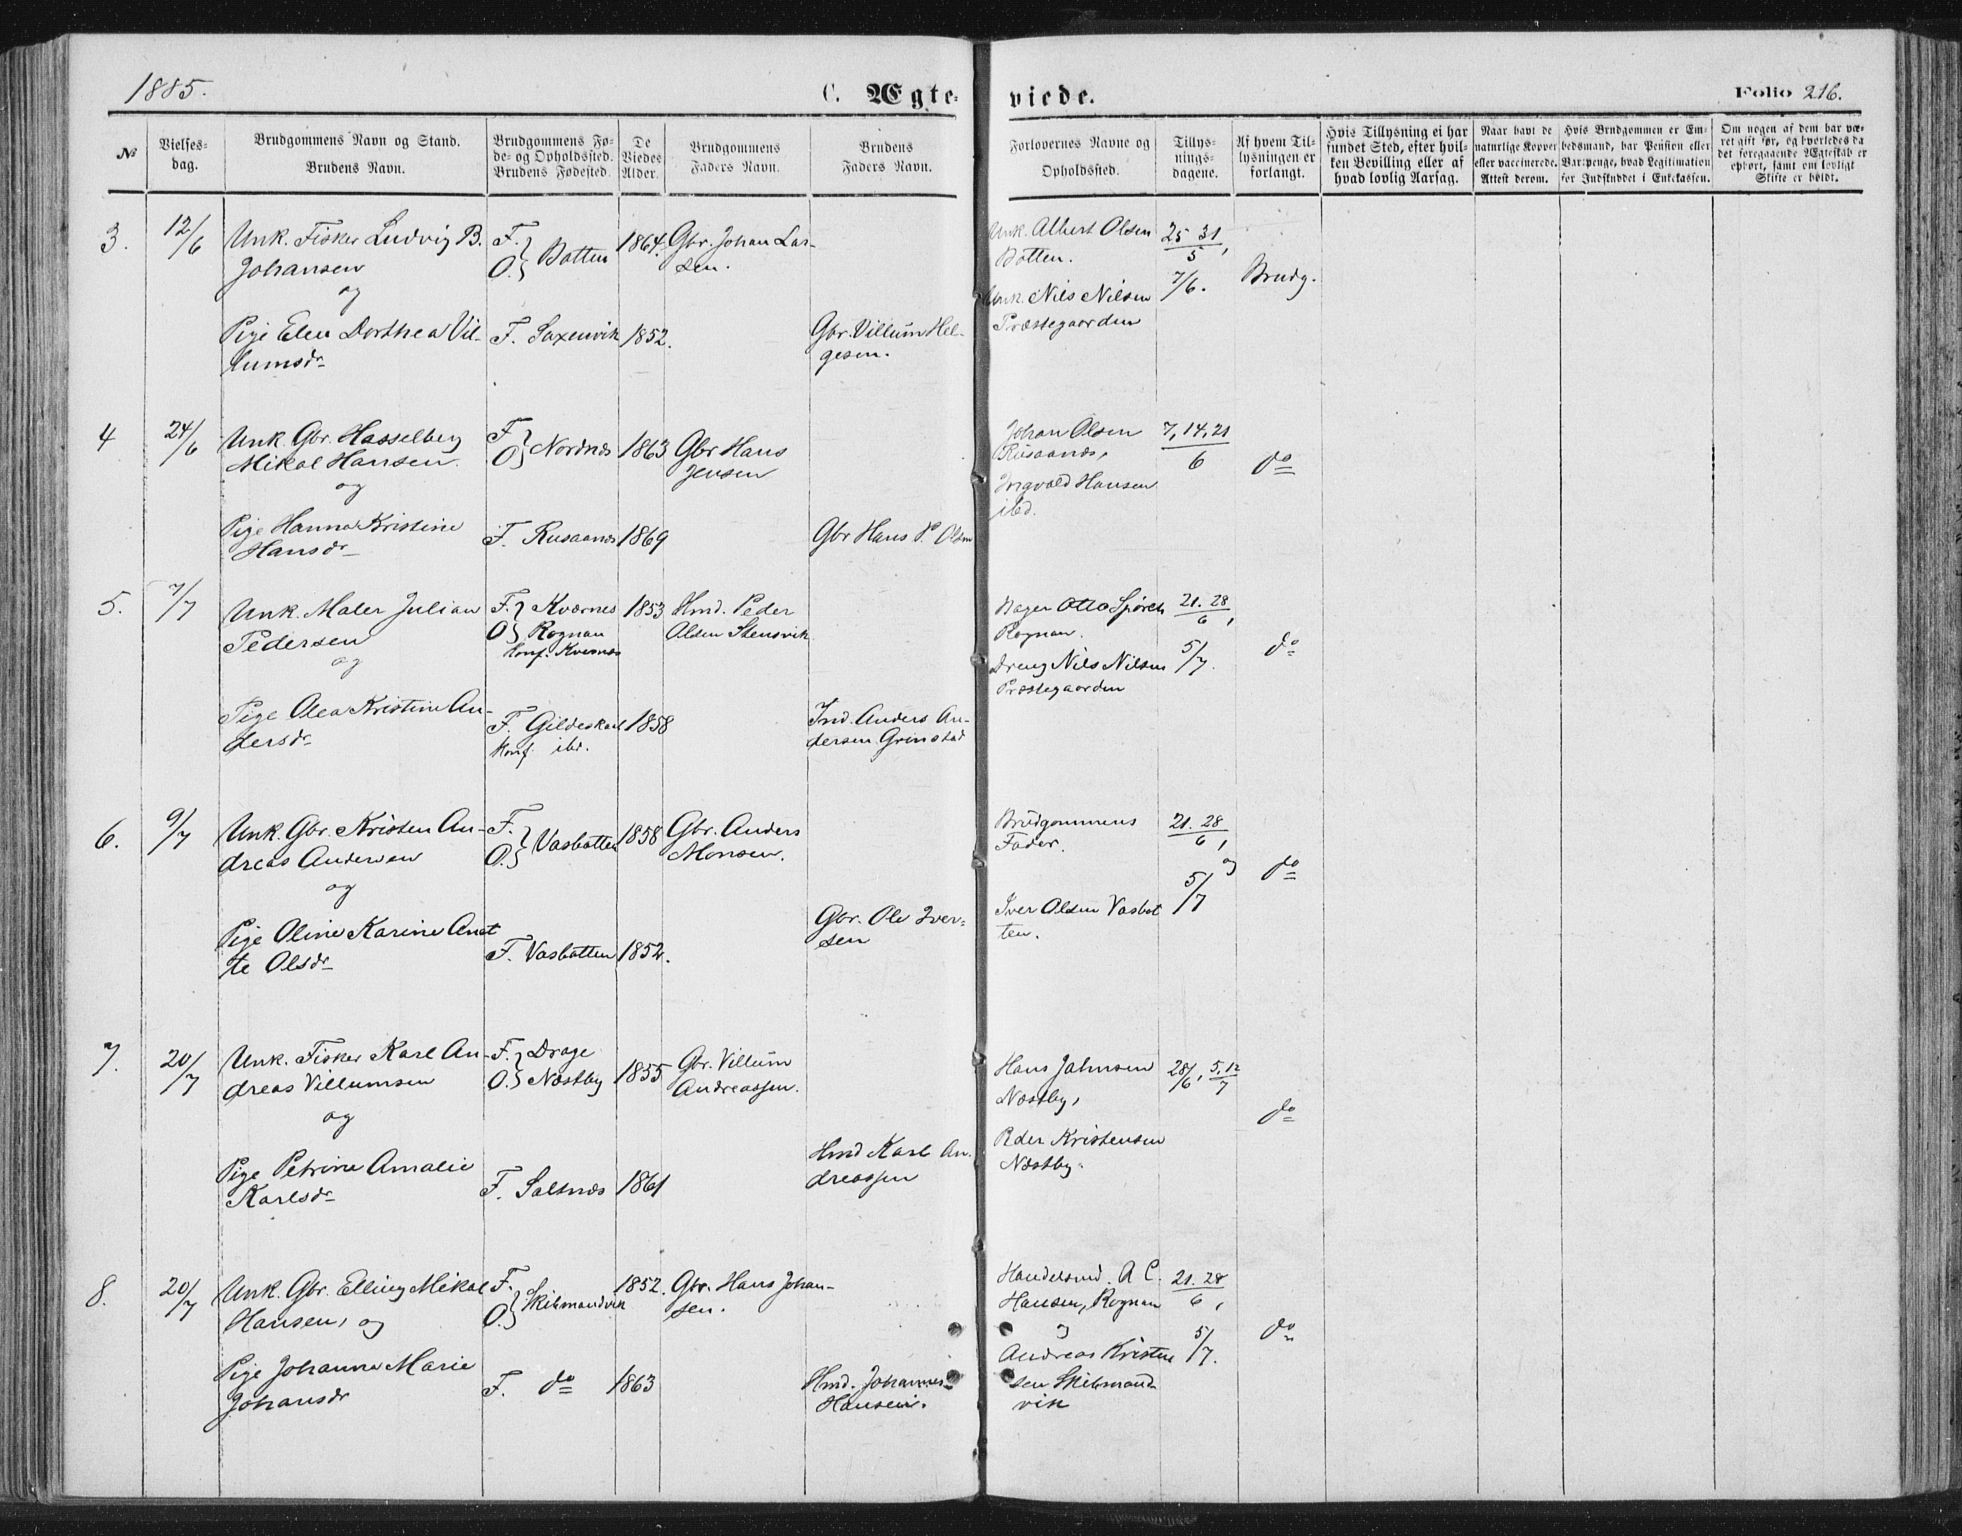 1885.
C. Ægte-
viede.
Folio 216.
No
Vielses-
dag.
Brudgommens Navn og Stand.
Brudens Navn.
Brudgommens Fø-
de- og Opholdssted.
Brudens Fødested.
De
Viedes
Alder.
Brudgommens
Faders Navn.
Brudens
Faders Navn.
Forlovernes Navne og
Opholdssted.
Tillys-
nings-
dagene.
Af hvem Til-
lysningen er
forlangt.
Hvis Tillysning ei har
fundet Sted, efter hvil-
ken Bevilling eller af
hvad lovlig Aarsag.
Naar havt de
naturlige Kopper
eller vaccinerede.
Attest derom.
Hvis Brudgommen er Em-
bedsmand, har Pension eller
Vartpenge, hvad Legitimation
for Indskuddet i Enkekassen.
Om nogen af dem har væ-
ret gift før, og hvorledes da
det foregaaende Ægteskab er
ophørt, samt om lovligt
Skifte er holdt.
3.
12/6
Unk. Fisker Ludvig B.
Johansen
og
Pige Elen Dorthea Vil-
lumsdr
F.
O. } Botten
F. Saxenvik
1864.
1852.
Gbr. Johan Lar-
sen.
Gbr. Villum Hel-
gesen.
Unk. Albert Olsen
Botten.
Unk. Nils Nilsen
Præstegaarden
25 31/5,
7/6.
Brudg.
4
24/6
Unk. Gbr. Hasselberg
Mikal Hansen.
og
Pige Hanna Kristine
Hansdr
F.
O } Nordnæs
F. Rusaanæs
1863
1869
Gbr Hans
Jensen
Gbr Hans P. Olsen
Johan Olsen
Rusaanæs,
Ingvald Hansen
ibd.
7, 14, 21/6
do
5.
7/7
Unk. Maler Julian
Pedersen
og
Pige Olea Kristine An-
dersdr
F. } Kværnes
O } Rognan
Konf. Kvernes
F. Gildeskaal
Konf. ibd.
1853
1858
Hmd. Peder
Olsen Stensvik
Ind. Anders An-
dersen Grinstad
Bager Otto Spörck
Rognan.
Dreng Nils Nilsen
Præstegaarden
21. 28/6,
5/7.
do
6.
9/7
Unk. Gbr. Kristen An-
dreas Andersen
og
Pige Oline Karine Anet
te Olsdr
F.
O. } Vasbotten
F. Vasbotten
1858
1852.
Gbr. Anders
Monsen.
Gbr. Ole Iver-
sen
Brudgommens
Fader.
Iver Olsen Vasbot
ten.
21. 28/6,
og
5/7
do
7.
20/7
Unk. Fisker Karl An-
dreas Villumsen
og
Pige Petrine Amalie
Karlsdr
F. } Drage
O. } Næstby
F. Saltnæs
1855
1861
Gbr. Villum
Andreassen.
Hmd Karl An-
dreassen
Hans Jahnsen
Næstby,
Peder Kristensen
Næstby.
28/6, 5, 12/7
do
8.
20/7
Unk. Gbr. Elling Mikal
Hansen, og
Pige Johanna Marie
Johansdr
F.
O. } Skibmandvik
F. do
1852.
1863
Gbr. Hans Johan-
sen.
Hmd. Johannes
Hansen.
Handelsmd. A C.
Hansen, Rognan
og
Andreas Kristen
sen Skibmand-
vik
21. 28/6,
5/7.
do